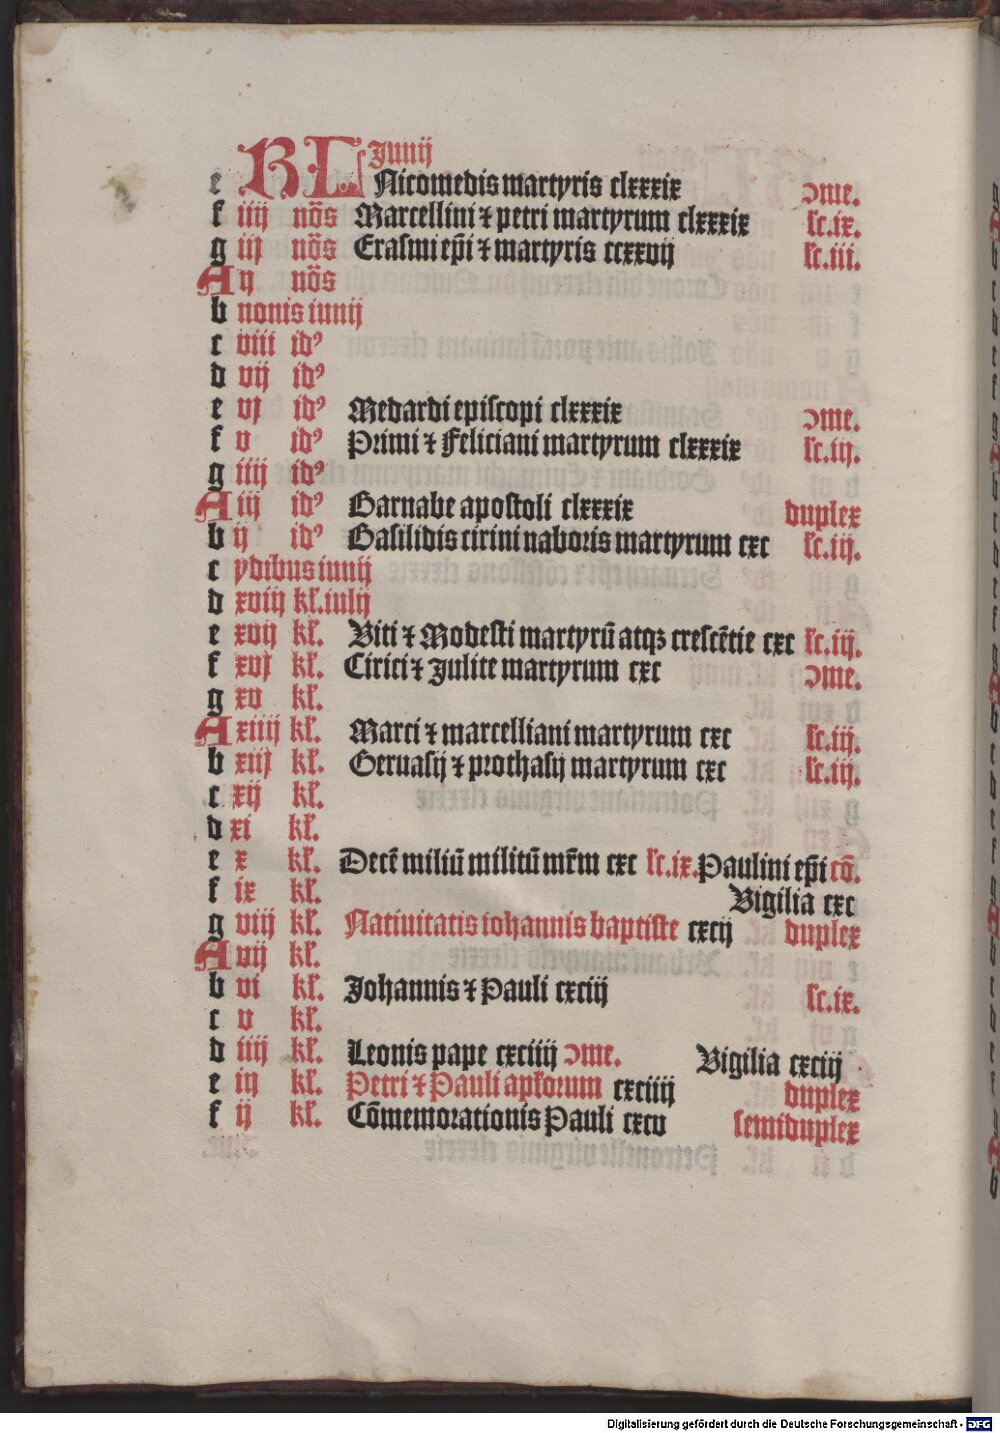 KL Junij
e Nicomedis martyris clxxxix ↄme.
f iiij nōs Marcellini ⁊ petri martyrum clxxxix ſc.ix.
g iij nōs Eraſmi ep̄i ⁊ martyris ccxxvij ſc.iii.
A ij nōs
b nonis iunij
c viii idꝰ
d vij idꝰ
e vj idꝰ Medardi epiſcopi clxxxix ↄme.
f v idꝰ Primi ⁊ Feliciani martyrum clxxxix ſc.iij.
g iiij idꝰ
A iij idꝰ Barnabe apoſtoli clxxxix duplex
b ij idꝰ Baſilidis cirini naboris martyrum cxc ſc.iij.
c ydibus iunij
d xviij kł. iulij
e xvij kł. Viti ⁊ Modeſti martyrū atqꝫ creſcētie cxc ſc.iij.
f xvj kł. Cirici ⁊ Julite martyrum cxc ↄme.
g xv kł.
A xiiij kł. Marci ⁊ marcelliani martyrum cxc ſc.iij.
b xiij kł. Geruaſij ⁊ prothaſij martyrum cxc ſc.iij.
c xij kł.
d xi kł.
e x kł. Decē miliū militū mr̄m cxc ſc.ix. Paulini ep̄i cō.
f ix kł. Vigilia cxc
g viij kł. Natiuitatis iohannis baptiſte cxcij duplex
A vij kł.
b vi kł. Johannis ⁊ Pauli cxciij ſc.ix.
c v kł.
d iiij kł. Leonis pape cxciiij ↄme. Vigilia cxciij
e iij kł. Petri ⁊ Pauli apłorum cxciiij duplex
f ij kł. Cōmemorationis Pauli cxcv ſemiduplex
Digitalisierung gefördert durch die Deutsche Forschungsgemeinschaft - DFG